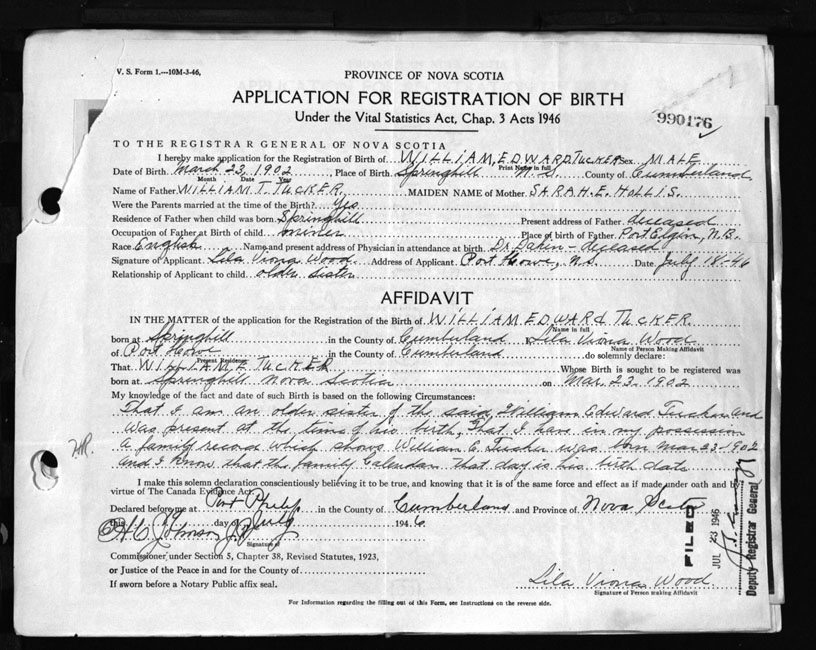 V. S. Form 1.---10M-3-46,
PROVINCE OF NOVA SCOTIA
APPLICATION FOR REGISTRATION OF BIRTH
Under the Vital Statistics Act, Chap. 3 Acts 1946
990176
TO THE REGISTRAR GENERAL OF NOVA SCOTIA
I hereby make application for the Registration of Birth of WILLIAM EDWARD TUCKER Sex MALE
Print Name in full
Date of Birth March 23, 1902, Place of Birth Springhill N.S. County of Cumberland
Month Day Year
Name of Father WILLIAM T. TUCKER MAIDEN NAME of Mother SARAH. E. HOLLIS.
Were the Parents married at the time of the Birth? Yes
Residence of Father when child was born Springhill Present address of Father deceased
Occupation of Father at Birth of child miner Place of birth of Father Port Elgin, N.B.
Race English Name and present address of Physician in attendance at birth Dr. Dakin - deceased
Signature of Applicant Lila Viona Wood Address of Applicant Port Howe, N.S. Date July 18-46
Relationship of Applicant to child older sister
AFFIDAVIT
IN THE MATTER of the application for the Registration of the Birth of WILLIAM EDWARD TUCKER.
Name in full
born at Springhill in the County of Cumberland I, Lila Viona Wood
Name of Person Making Affidavit
of Port Howe in the County of Cumberland do solemnly declare:
Present Residence
That WILLIAM E TUCKER Whose Birth is sought to be registered was
born at Springhill Nova Scotia on Mar 23, 1902
My knowledge of the fact and date of such Birth is based on the following Circumstances:
That I am an older sister of the said William Edward Tucker and
was present at the time of his birth, That I have in my possession
a family record which shows William E. Tucker was born Mar 23-1902
and I know that the family Calendar that day is his birth date
I make this solemn declaration conscientiously believing it to be true, and knowing that it is of the same force and effect as if made under oath and by
virtue of The Canada Evidence Act.
Declared before me at Port Philip in the County of Cumberland and Province of Nova Scotia
This day of July 1946
Signature of
Commissioner under Section 5, Chapter 38, Revised Statutes, 1923,
or Justice of the Peace in and for the County of
If sworn before a Notary Public affix seal.
Lila Viona Wood
Signature of Person making Affidavit
FILED
JUL 23 1946
Deputy Registrar General
For Information regarding the filling out of this Form, see Instructions on the reverse side.